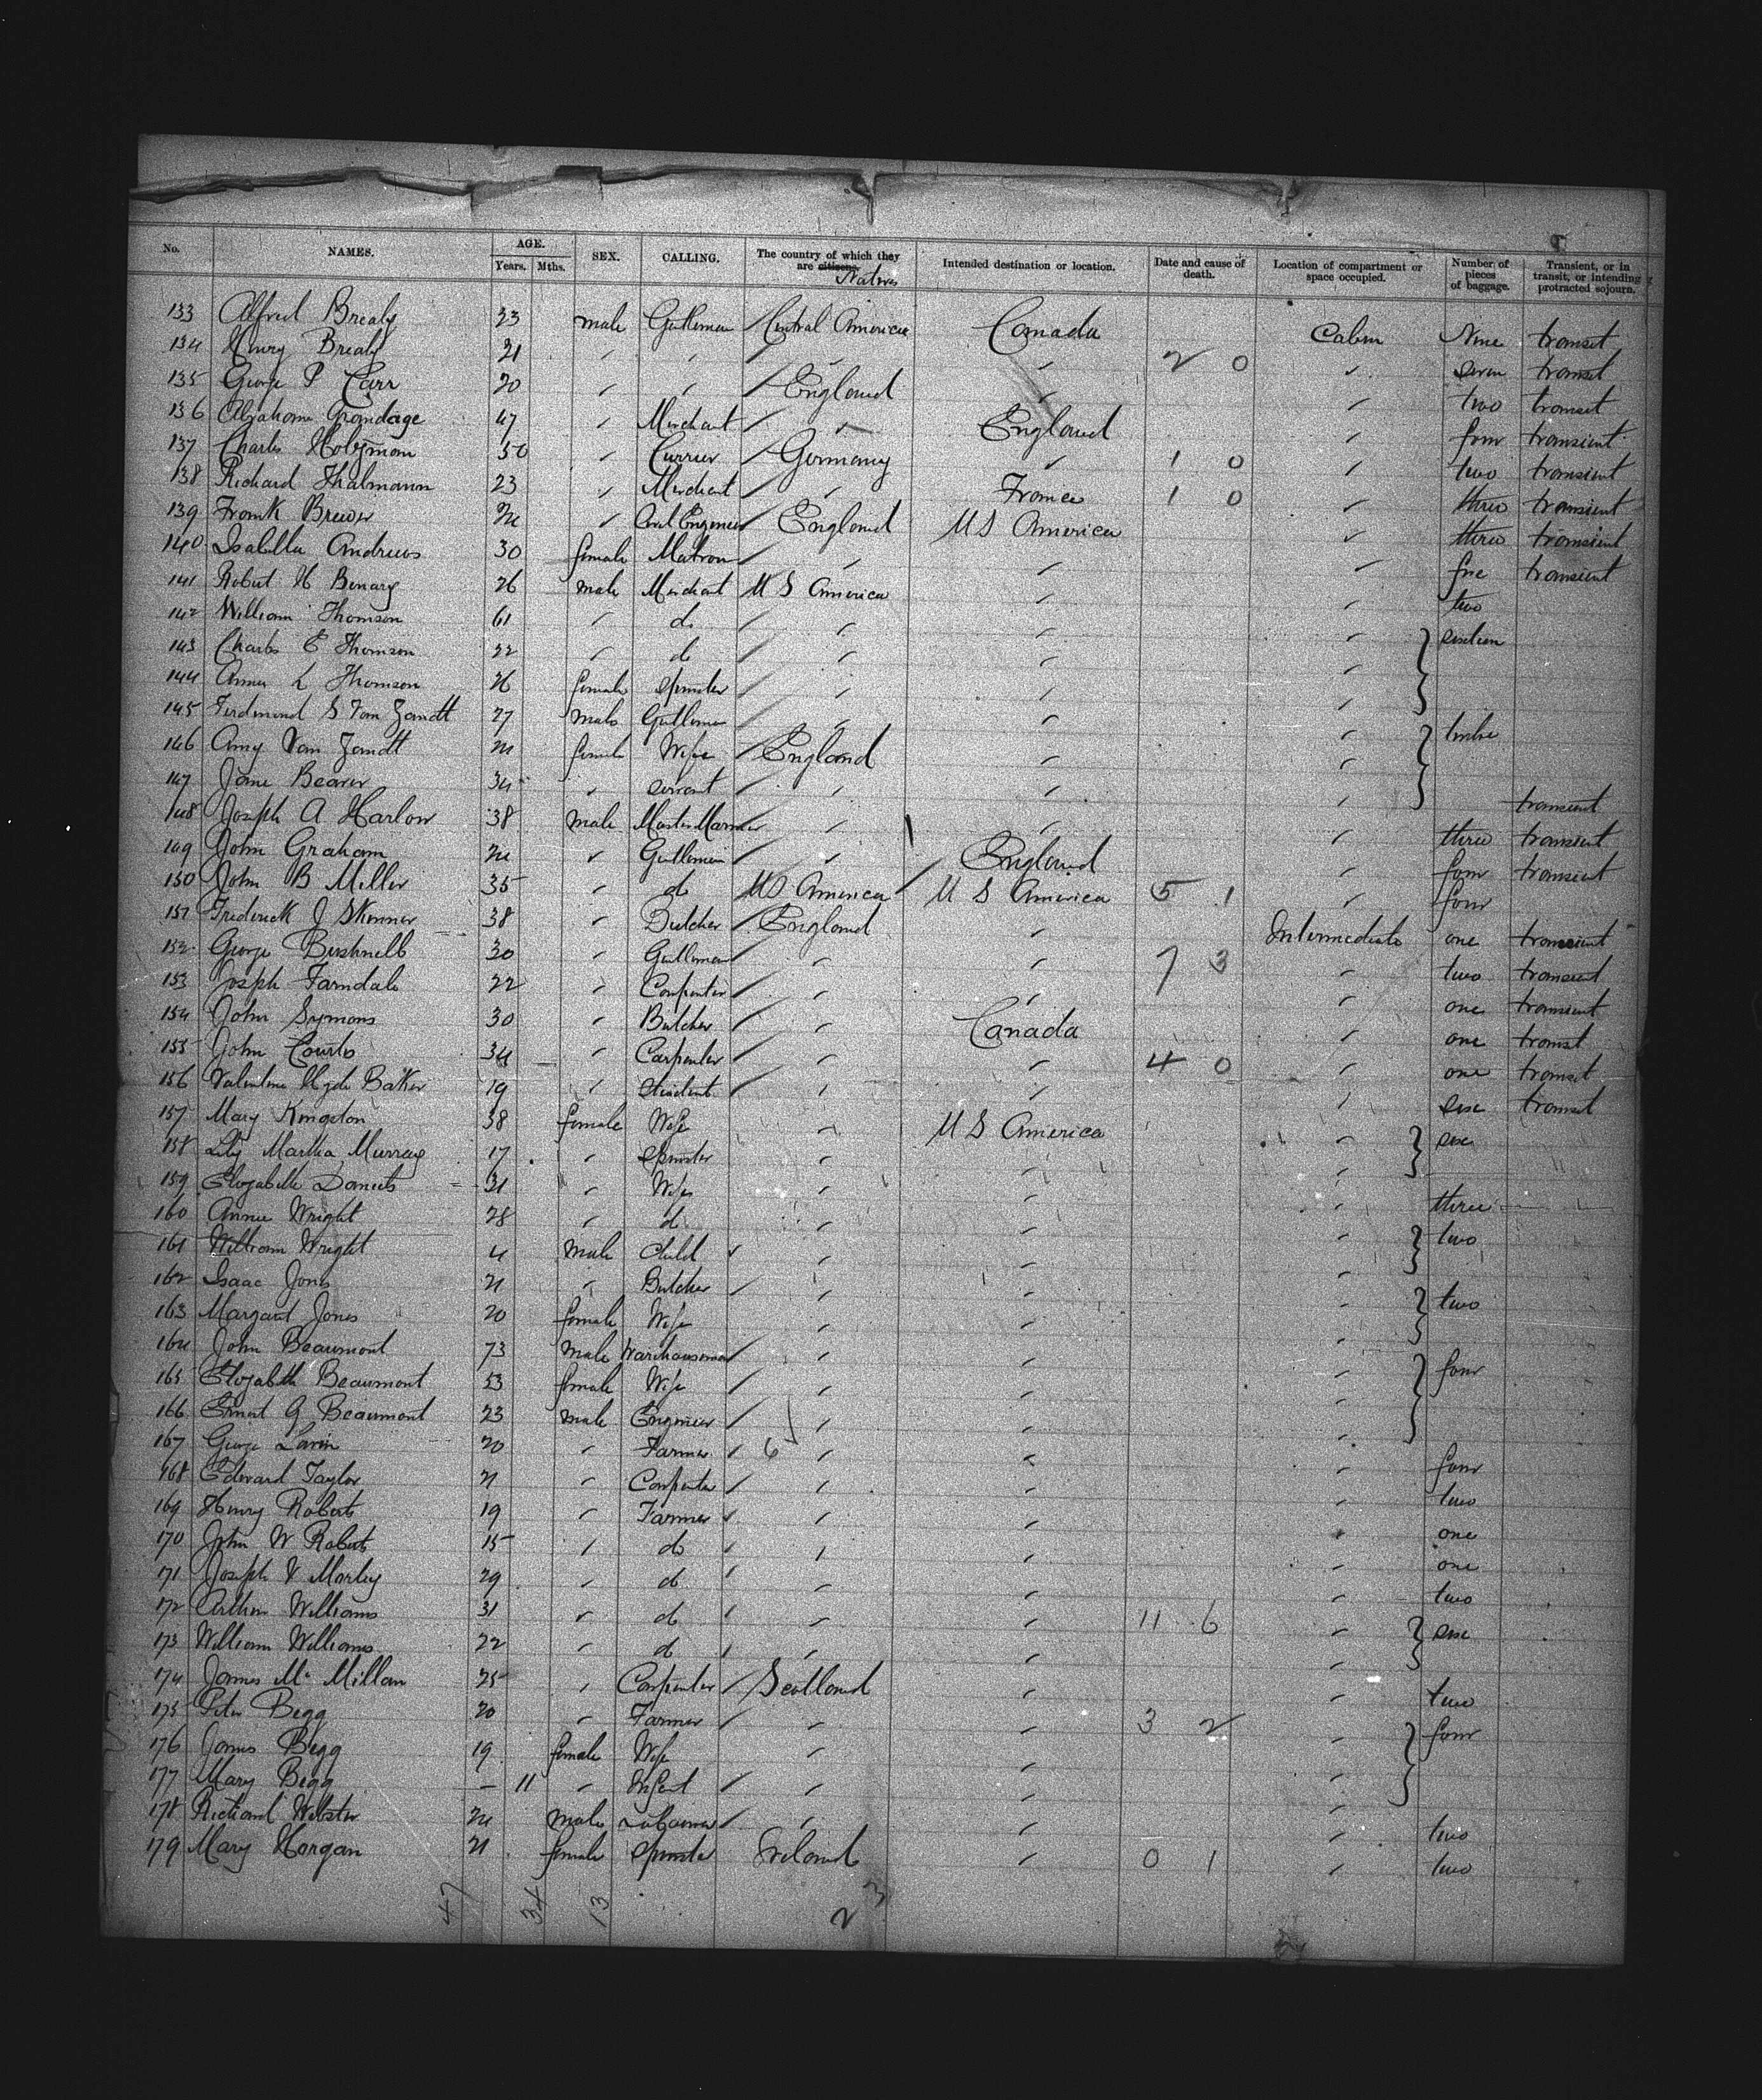 No. NAMES. AGE. Years. Mths. SEX. CALLING. The country of which they are citizens. Natives Intended destination or location. Date and cause of death. Location of compartment or space occupied. Number of pieces of baggage. Transient, or in transit, or intending protracted sojourn.
133 Alfred Brealy 23 male Gentleman Central America Canada Cabin Nine transit
134 Henry Brealy 21 " " " " 2 0 " seven transit
135 George P Carr 20 " " England " " two transit
136 Abraham Grandage 47 " Merchant " England " four transient
137 Charles Holzman 50 " Currier Germany " 1 0 " two transient
138 Richard Thalmann 23 " Merchant " France 1 0 " three transient
139 Frank Brewer 24 " Civil Engineer England U S America " three transient
140 Isabella Andrews 30 female Matron " " " five transient
141 Robert H Benary 26 male Merchant U S America " " two
142 William Thomson 61 " do " " " sixteen
143 Charles E Thomson 22 " do " " "
144 Anna L Thomson 26 female Spinster " " "
145 Ferdinand S Van Zandt 27 male Gentleman " " " twelve
146 Amy Van Zandt 21 female Wife England " "
147 Jane Bearer 34 " servant " " " transient
148 Joseph A Harlow 38 male Master Mariner " " " three transient
149 John Graham 24 " Gentleman " England " four transient
150 John B Miller 35 " do U S America U S America 5 1 " four
151 Frederick J Skinner 38 " Butcher England " Intermediate one transient
152 George Bushnell 30 " Gentleman " " 7 3 " two transient
153 Joseph Farndale 22 " Carpenter " " " one transient
154 John Symons 30 " Butcher " Canada " one transit
155 John Courts 34 " Carpenter " " 4 0 " one transit
156 Valentine Hyde Baker 19 " Student " " " six transit
157 Mary Kingdon 38 female Wife " U S America " six
158 Lily Martha Murray 17 " Spinster " " "
159 Elizabeth Daniels 31 " Wife " " " three
160 Annie Wright 28 " do " " " two
161 William Wright 4 male Child " " "
162 Isaac Jones 21 " Butcher " " " two
163 Margaret Jones 20 female Wife " " "
164 John Beaumont 73 male Warehouseman " " " four
165 Elizabeth Beaumont 53 female Wife " " "
166 Ernest G Beaumont 23 male Engineer " " "
167 George 20 " Farmer 6 " " " four
168 Edward Taylor 21 " Carpenter " " " two
169 Henry Roberts 19 " Farmer " " " one
170 John W Roberts 15 " do " " " one
171 Joseph V Morley 29 " do " " " two
172 Arthur Williams 31 " do " " 11 6 " six
173 William Williams 22 " do " " "
174 James Mc Millan 25 " Carpenter Scotland " " two
175 Peter Begg 20 " Farmer " " 3 2 " four
176 James Begg 19 female Wife " " "
177 Mary Begg - 11 " Infant " " "
178 Richard Webster 24 male Labourer " " " two
179 Mary Horgan 21 female Spinster Ireland " 0 1 " two
47 34 13 2 3